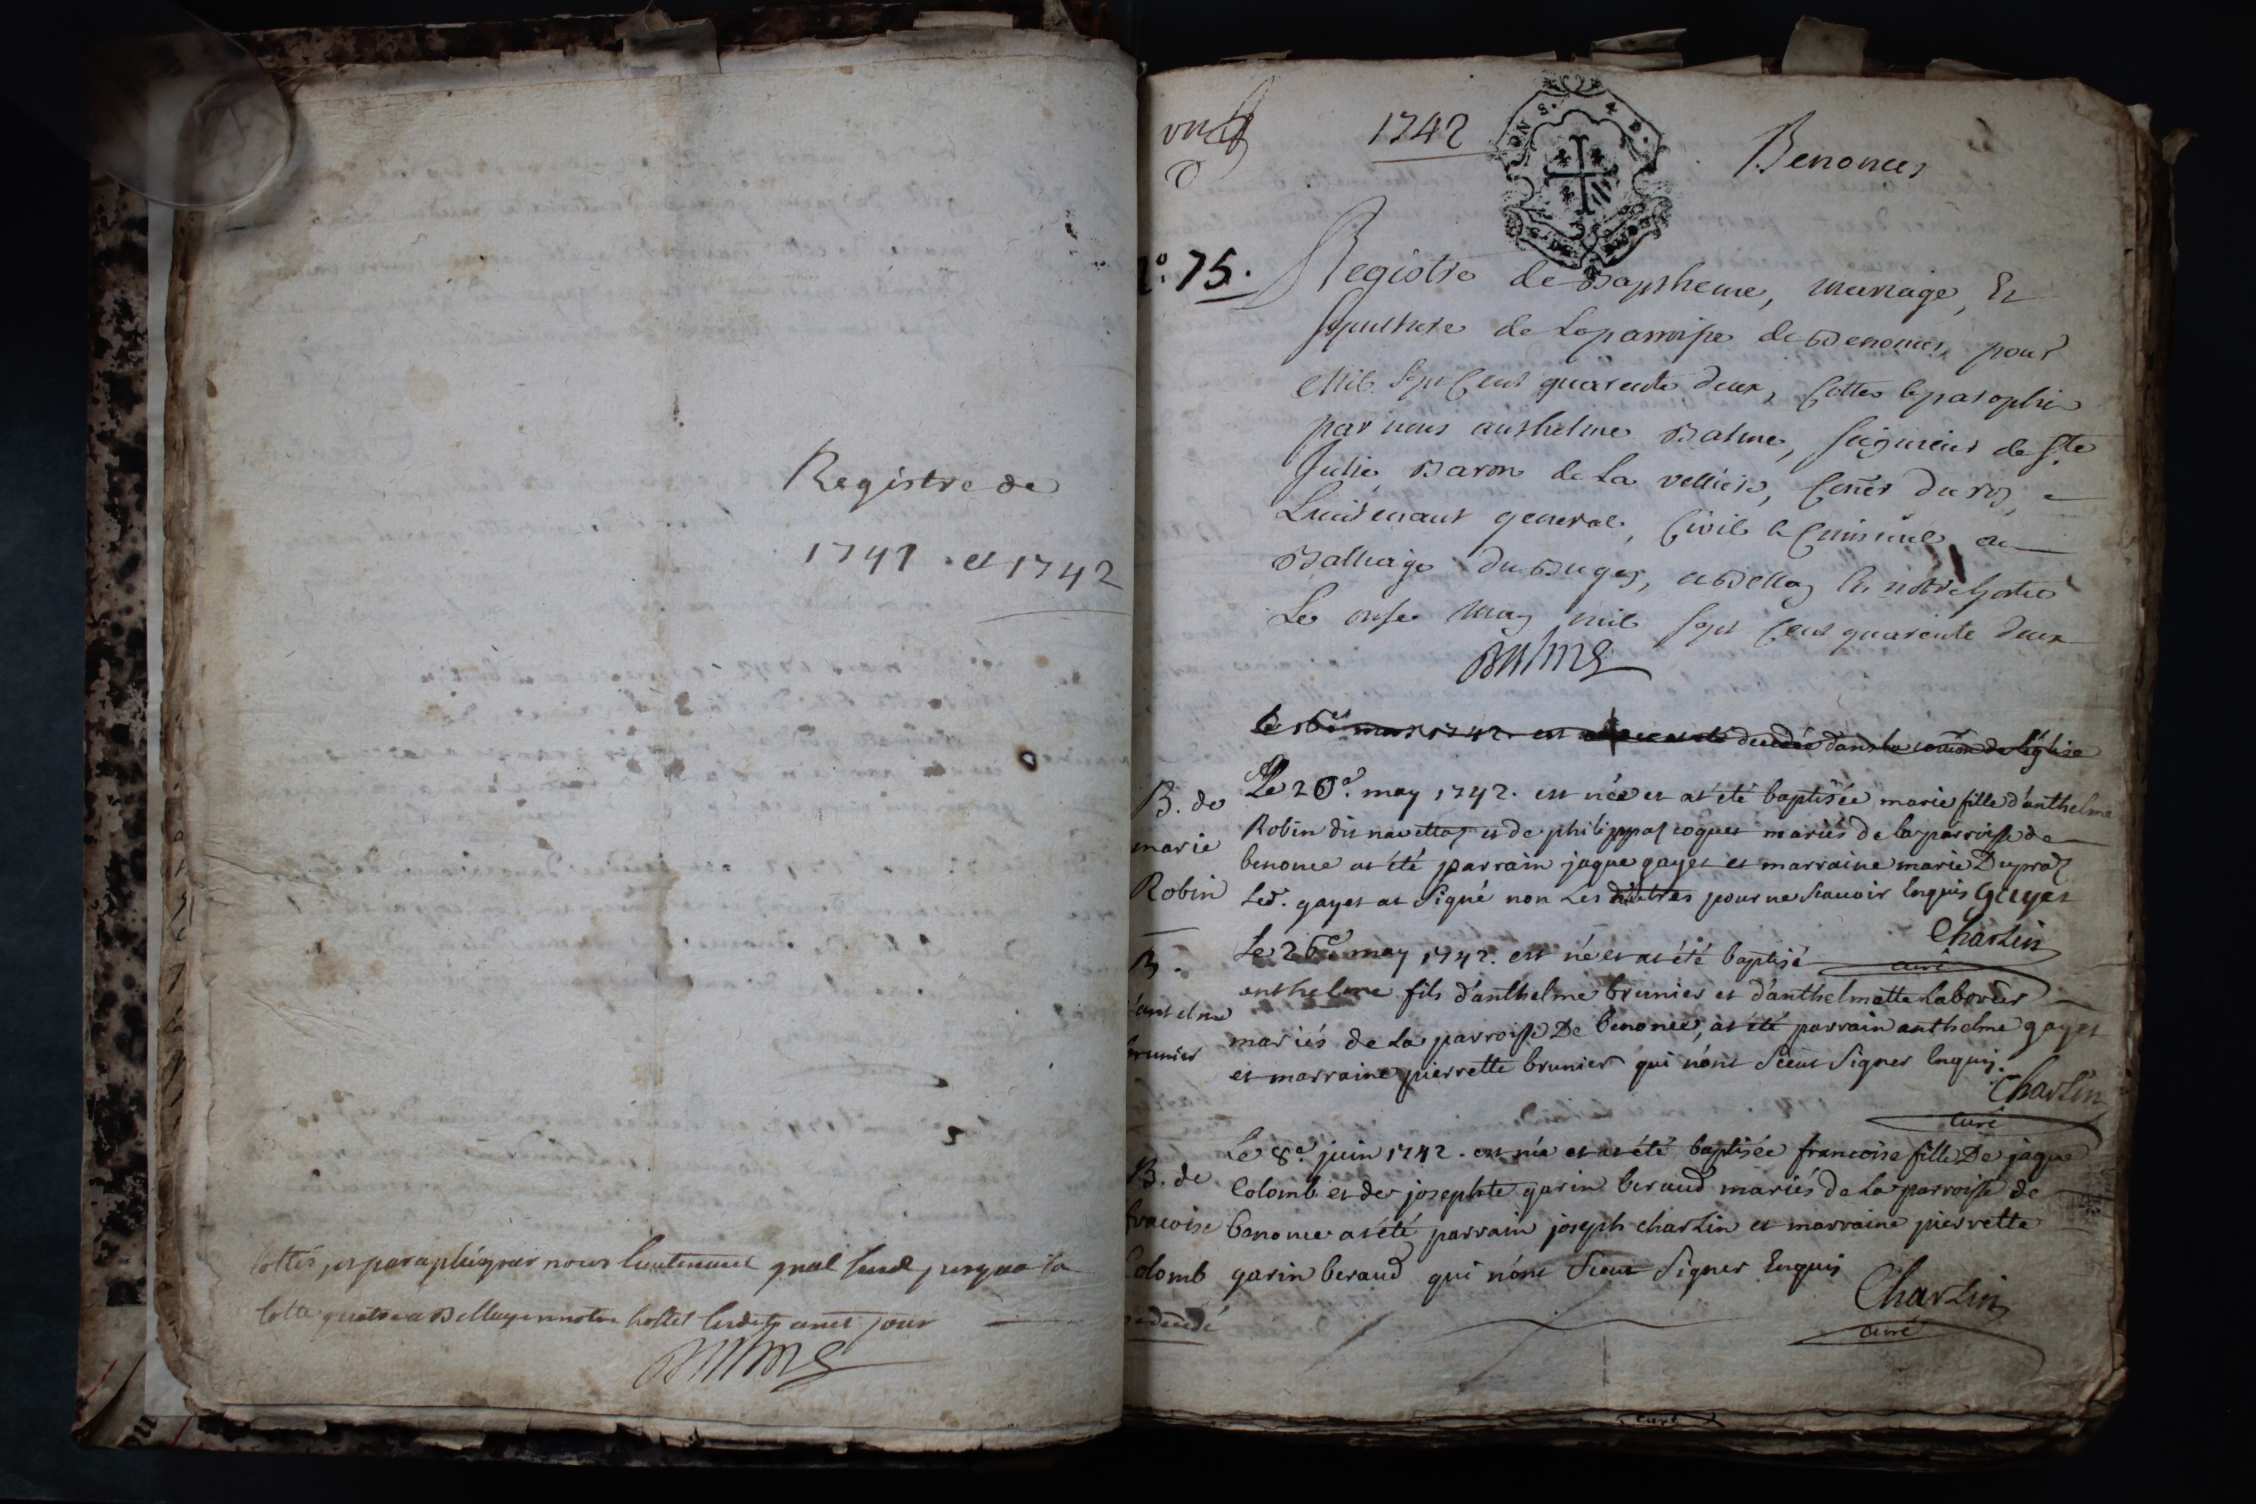 Registre de
1741 . et 1742
Cottés, et paraphés par nous lieutenant gnal seul jusqua la
Cotte quatre a Belley en notre hostel lesdits an et jour
Balme
1742
Benonces
75.
Registre de Baptheme, mariage, Et
sepulture de la parroisse de Benonces, pour
Mil sept Cent quarente deux, Cottes & paraphé
par nous anthelme Balme, seigneur de Ste
Julie, Baron de La velliere, Coner du roy,
Lieutenant general, Civil & Criminel au
Balliage du Bugey, a Belley En notre hostel
Le onse may mil sept Cent quarente deux
Balme
Le 16e mars 1742. est decedée dans la de l'église
Le 26e. may 1742. est née et at été baptisée marie fille d'anthelme
Robin dit navettaz et de philippaz coquet mariés de la parroisse de
benonce at été parrain jaque gayet et marraine marie Dupraz
Led. gayet at signé non Les autres pour ne scavoir Enquis Gayet
Charlin
curé
B. de
marie
Robin
Le 26e may 1742. est né et at été baptisé
anthelme fils d'anthelme brunier et d'anthelmette Laborier
mariés de La parroisse De benonce, at été parrain anthelme gayet
et marraine pierrette brunier qui n'ont sceut signer Enquis.
Charlin
curé
B.
d'antelme
brunier
Le 8e. juin 1742. est née et at été baptisée francoise fille De jaque
Colomb et de josephte garin beraud mariés de La parroisse de
benonce at été parrain joseph charlin et marraine pierrette
garin beraud qui n'ont sceut signer Enquis
Charlin
curé
B. de
francoise
Colomb
decedé
curé